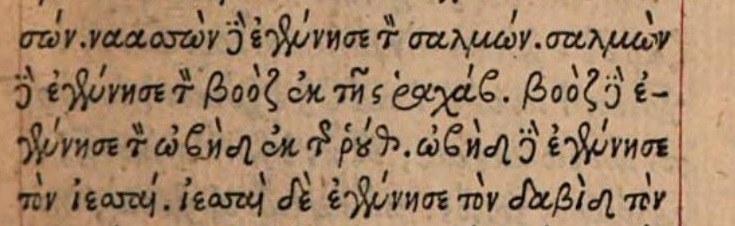 σσών. ναασσὼν δὲ ἐγέννησε τὸν σαλμών. σαλμὼν
δὲ ἐγέννησε τὸν βοὸζ ἐκ τῆς ῥαχάβ. βοὸζ δὲ ἐ-
γέννησε τὸν ὠβὴδ ἐκ τῆς ῥούθ. ὠβὴδ δὲ ἐγέννησε
τὸν ἰεσσαί. ἰεσσαὶ δὲ ἐγέννησε τὸν δαβὶδ τὸν